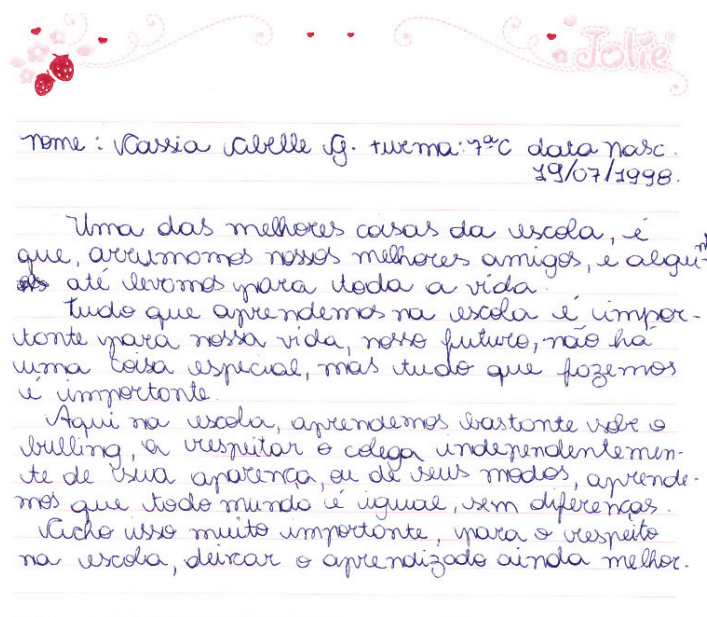 Jolie
nome: Kassia Abelle G. turma: 7ªC data nasc.
19/07/1998.
Uma das melhores coisas da escola, é
que, arrumamos nossos melhores amigos, e algun-
s até levamos para toda a vida.
Tudo que aprendemos na escola é impor-
tante para nossa vida, nosso futuro, não há
uma coisa especial, mas tudo que fazemos
é importante.
Aqui na escola, aprendemos bastante sobre o
bulling, a respeitar o colega independentemen-
te de sua aparença, ou de seus modos, aprende-
mos que todo mundo é igual, sem diferenças.
Acho isso muito importante, para o respeito
na escola, deixar o aprendizado ainda melhor.